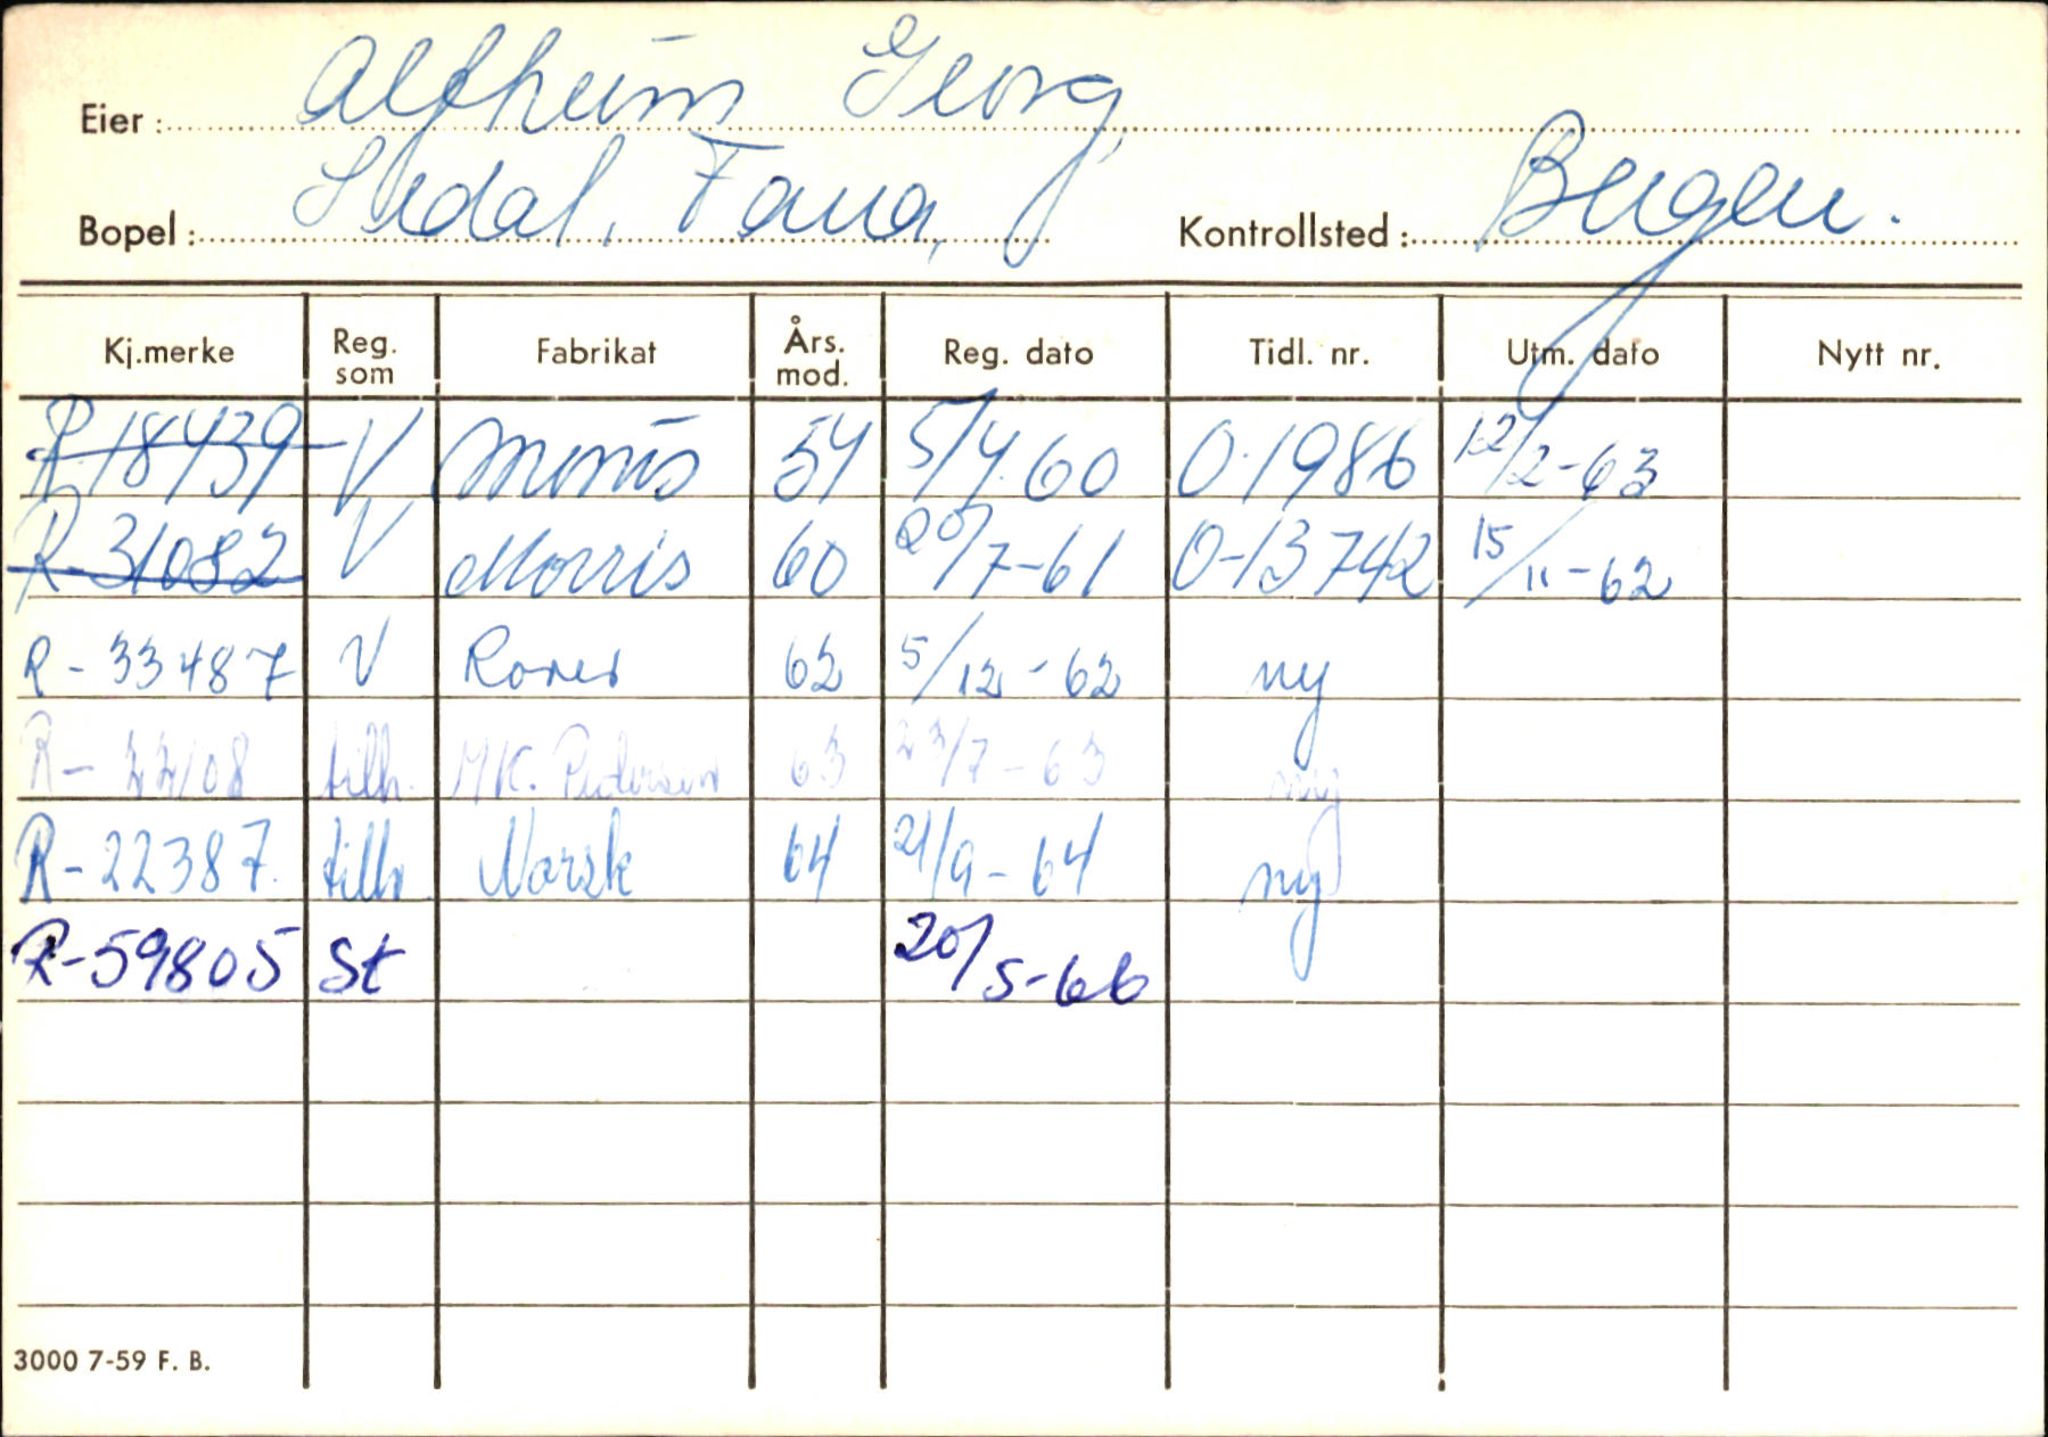 Eier: Altheim Georg
Bopel: Fana, Kontrollsted: Bergen.
Kj.merke Reg. som Fabrikat Års. mod. Reg. dato Tidl. nr. Utm. dato Nytt nr.
R-18439 V Morris 54 5/4.60 O-1986 12/2-63
R-31082 V Morris 60 20/7-61 O-13742 15/11-62
R-33487 V Rover 62 5/12-62 ny
R- tilh. MK. Pedersen 63 23/7-63 ny
R-22387. tilh Norsk 64 21/9-64 ny
R-59805 St 20/5-66
3000 7-59 F. B.